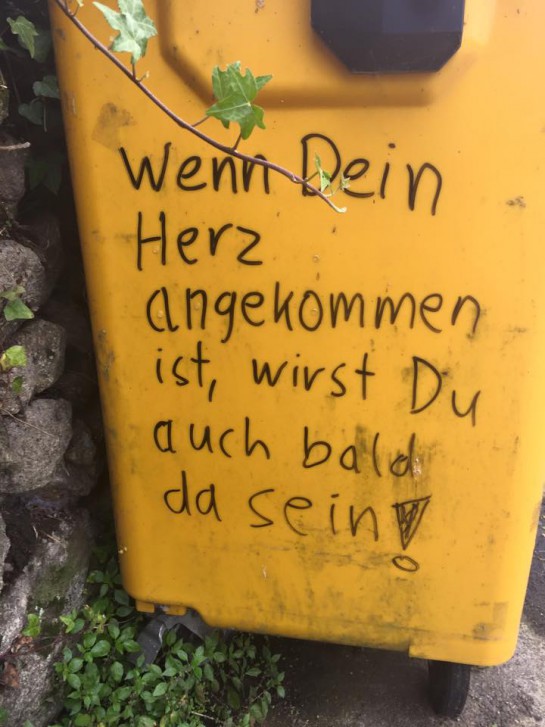 Wenn Dein
Herz
angekommen
ist, wirst Du
auch bald
da sein!